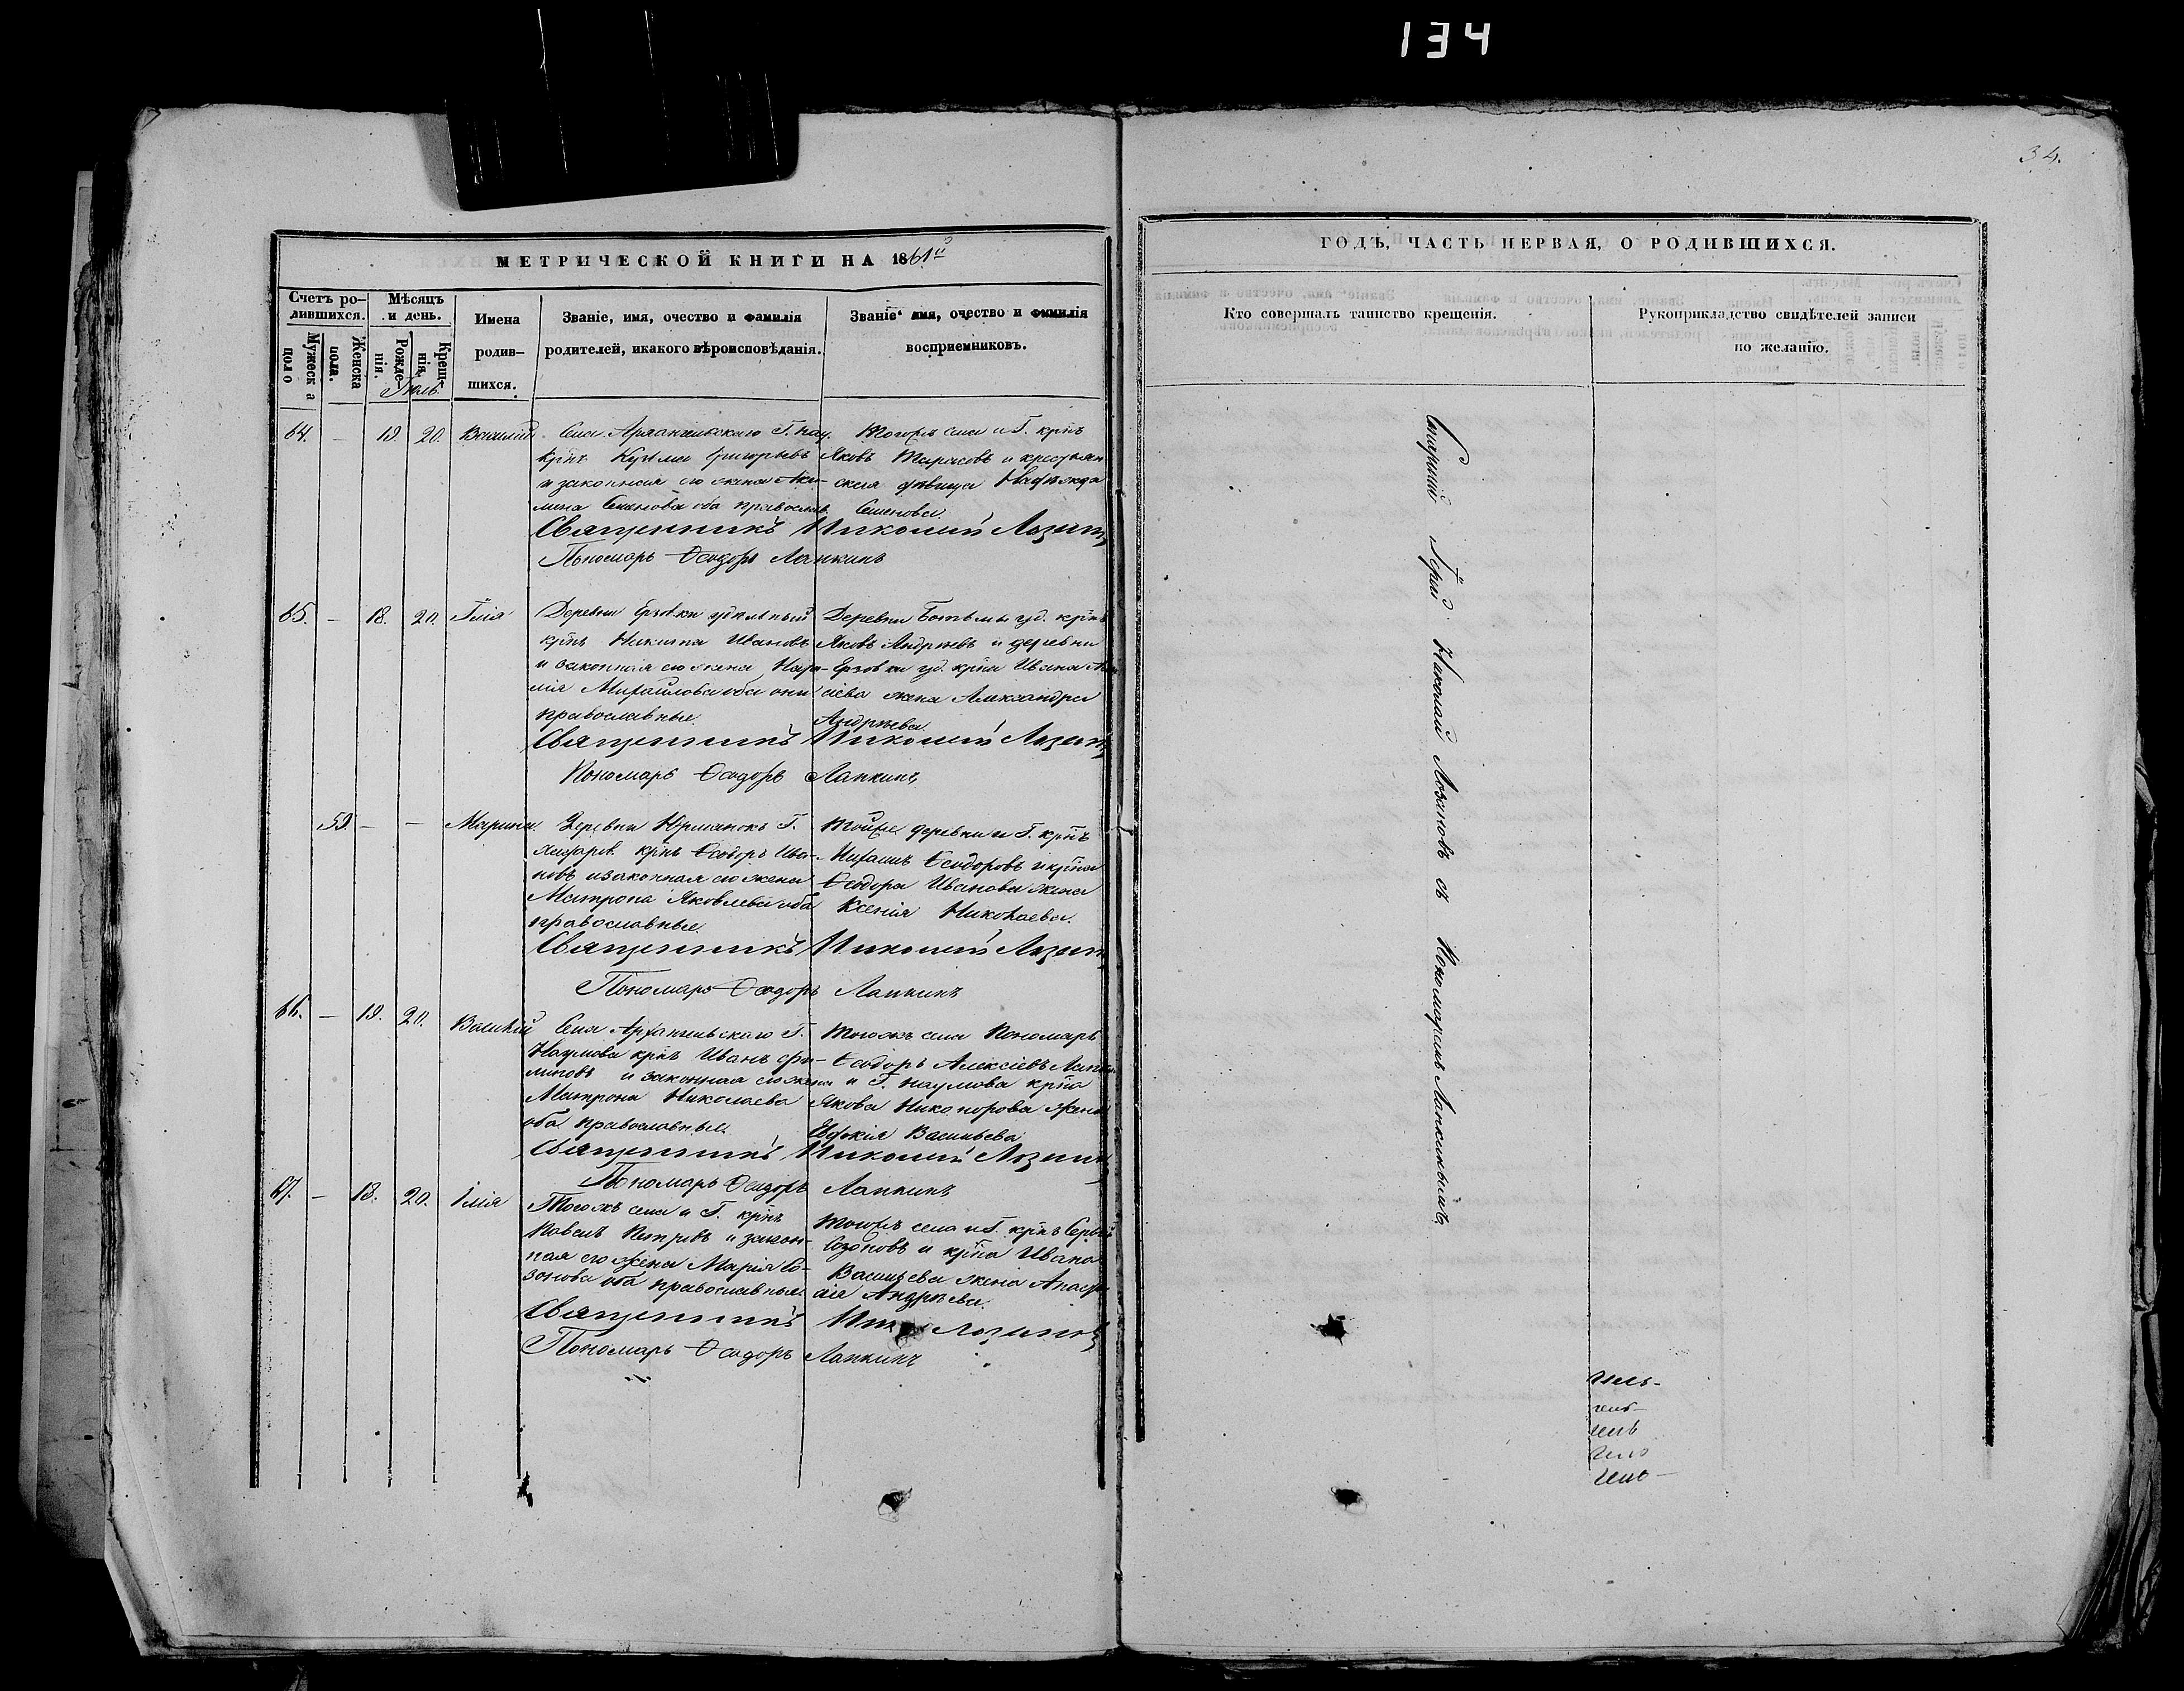 134
34.
МЕТРИЧЕСКОЙ КНИГИ НА 1861й
Счетъ ро-
дившихся.
Мужеска
поло
Женска
пола.
Мѣсяцъ
и день.
Рожде-
нія.
Крещ-
нія.
Іюль.
Имена
родив-
шихся.
Званіе, имя, очество и фамилія
родителей, икакого вѣроисповѣданія.
Званіе имя, очество и фамилія
восприемниковъ.
64. — 19. 20. Василій
Села Архангельскаго Г. Нау.
крнъ Кузьма Григорьевъ
и законная его жена Аки-
лина Семенова оба православ.
Тогожъ села и Г. крнъ
Яковъ Тарасовъ и крестьян
ская дѣвица Надежда
Семенова.
Священникъ Николай Лозановъ
Пономарь Ѳеодоръ Лапкинъ
65. — 18. 20. Илія
Деревни Ерзовки удѣльный
крнъ Никита Ивановъ
и законная его жена
Михайлова оба они
православные.
Деревни Ботьмы уд. крнъ
Яковъ Андреевъ и деревни
Ерзовки уд. крна Ивана
жена Александра
Андреева.
Священникъ Николай Лозановъ
Пономарь Ѳеодоръ Лапкинъ
59. — — Марина.
Деревни Юрманокъ Г.
крнъ Ѳеодоръ Ива-
новъ изаконная его жена
Матрона Яковлева оба
православные.
Тойже деревни и Г. крнъ
Михаилъ Ѳеодоровъ и крна
Ѳеодора Иванова жена
Ксенія Николаева.
Священникъ Николай Лозановъ
Пономарь Ѳеодоръ Лапкинъ
66. — 19. 20. Василій
Села Архангельскаго Г.
Наумова крнъ Иванъ Фи-
липовъ и законная его жена
Матрона Николаева
оба православные.
Тогожъ села Пономарь
Ѳеодоръ Алексіевъ Лапкинъ
и Г. Наумова крна
Якова Никонорова жена
Евдокія Васильева
Священникъ Николай Лозановъ
Пономарь Ѳеодоръ Лапкинъ
67. — 18. 20. Илія
Тогожъ села и Г. крнъ
Павелъ Петровъ и закон-
ная его жена Марія Со-
зонова оба православные
Тогожъ села и Г. крнъ Сергѣй
Созоновъ и крна Ивана
Васильева жена Анаста
сія Андреева.
Священникъ Лозановъ
Пономарь Ѳеодоръ Лапкинъ
ГОДЪ, ЧАСТЬ ПЕРВАЯ, О РОДИВШИХСЯ.
Кто совершалъ таинство крещенія.
Рукоприкладство свидѣтелей записи
по желанію.
Старшій Іерей Николай Лозановъ съ Пономаремъ Лапкинымъ